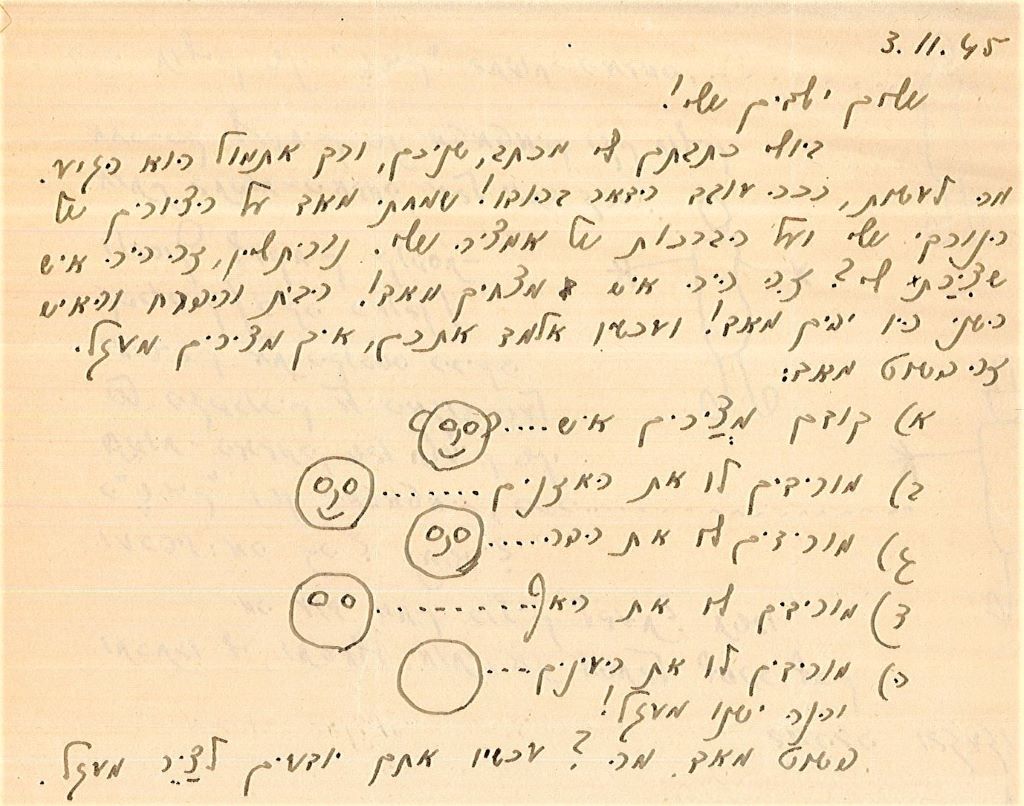 3.11.45
שלום ילדים שלי!
ביולי כתבתם לי מכתב, שניכם, ורק אתמול הוא הגיע.
מה לעשות, ככה עובד הדאר בהודו! שמחתי מאד על הציורים של
הנורבי שלי ועל הברכות של אמציה שלי. נורית'לין, זה היה איש
שצירת לי? זה היה איש מצחיק מאד! הבית והפרח והאיש
השני היו יפים מאד! ועכשיו אלמד אתכם, איך מציירים מעגל.
זה פשוט מאד:
א) קודם מציירים איש....
ב) מורידים לו את האזנים.......
ג) מורידים לו את הפה.....
ד) מורידים לו את האף.........
ה) מורידים לו את העינים....
והנה ישנו מעגל!
פשוט מאד מה? עכשיו אתם יודעים לציר מעגל.